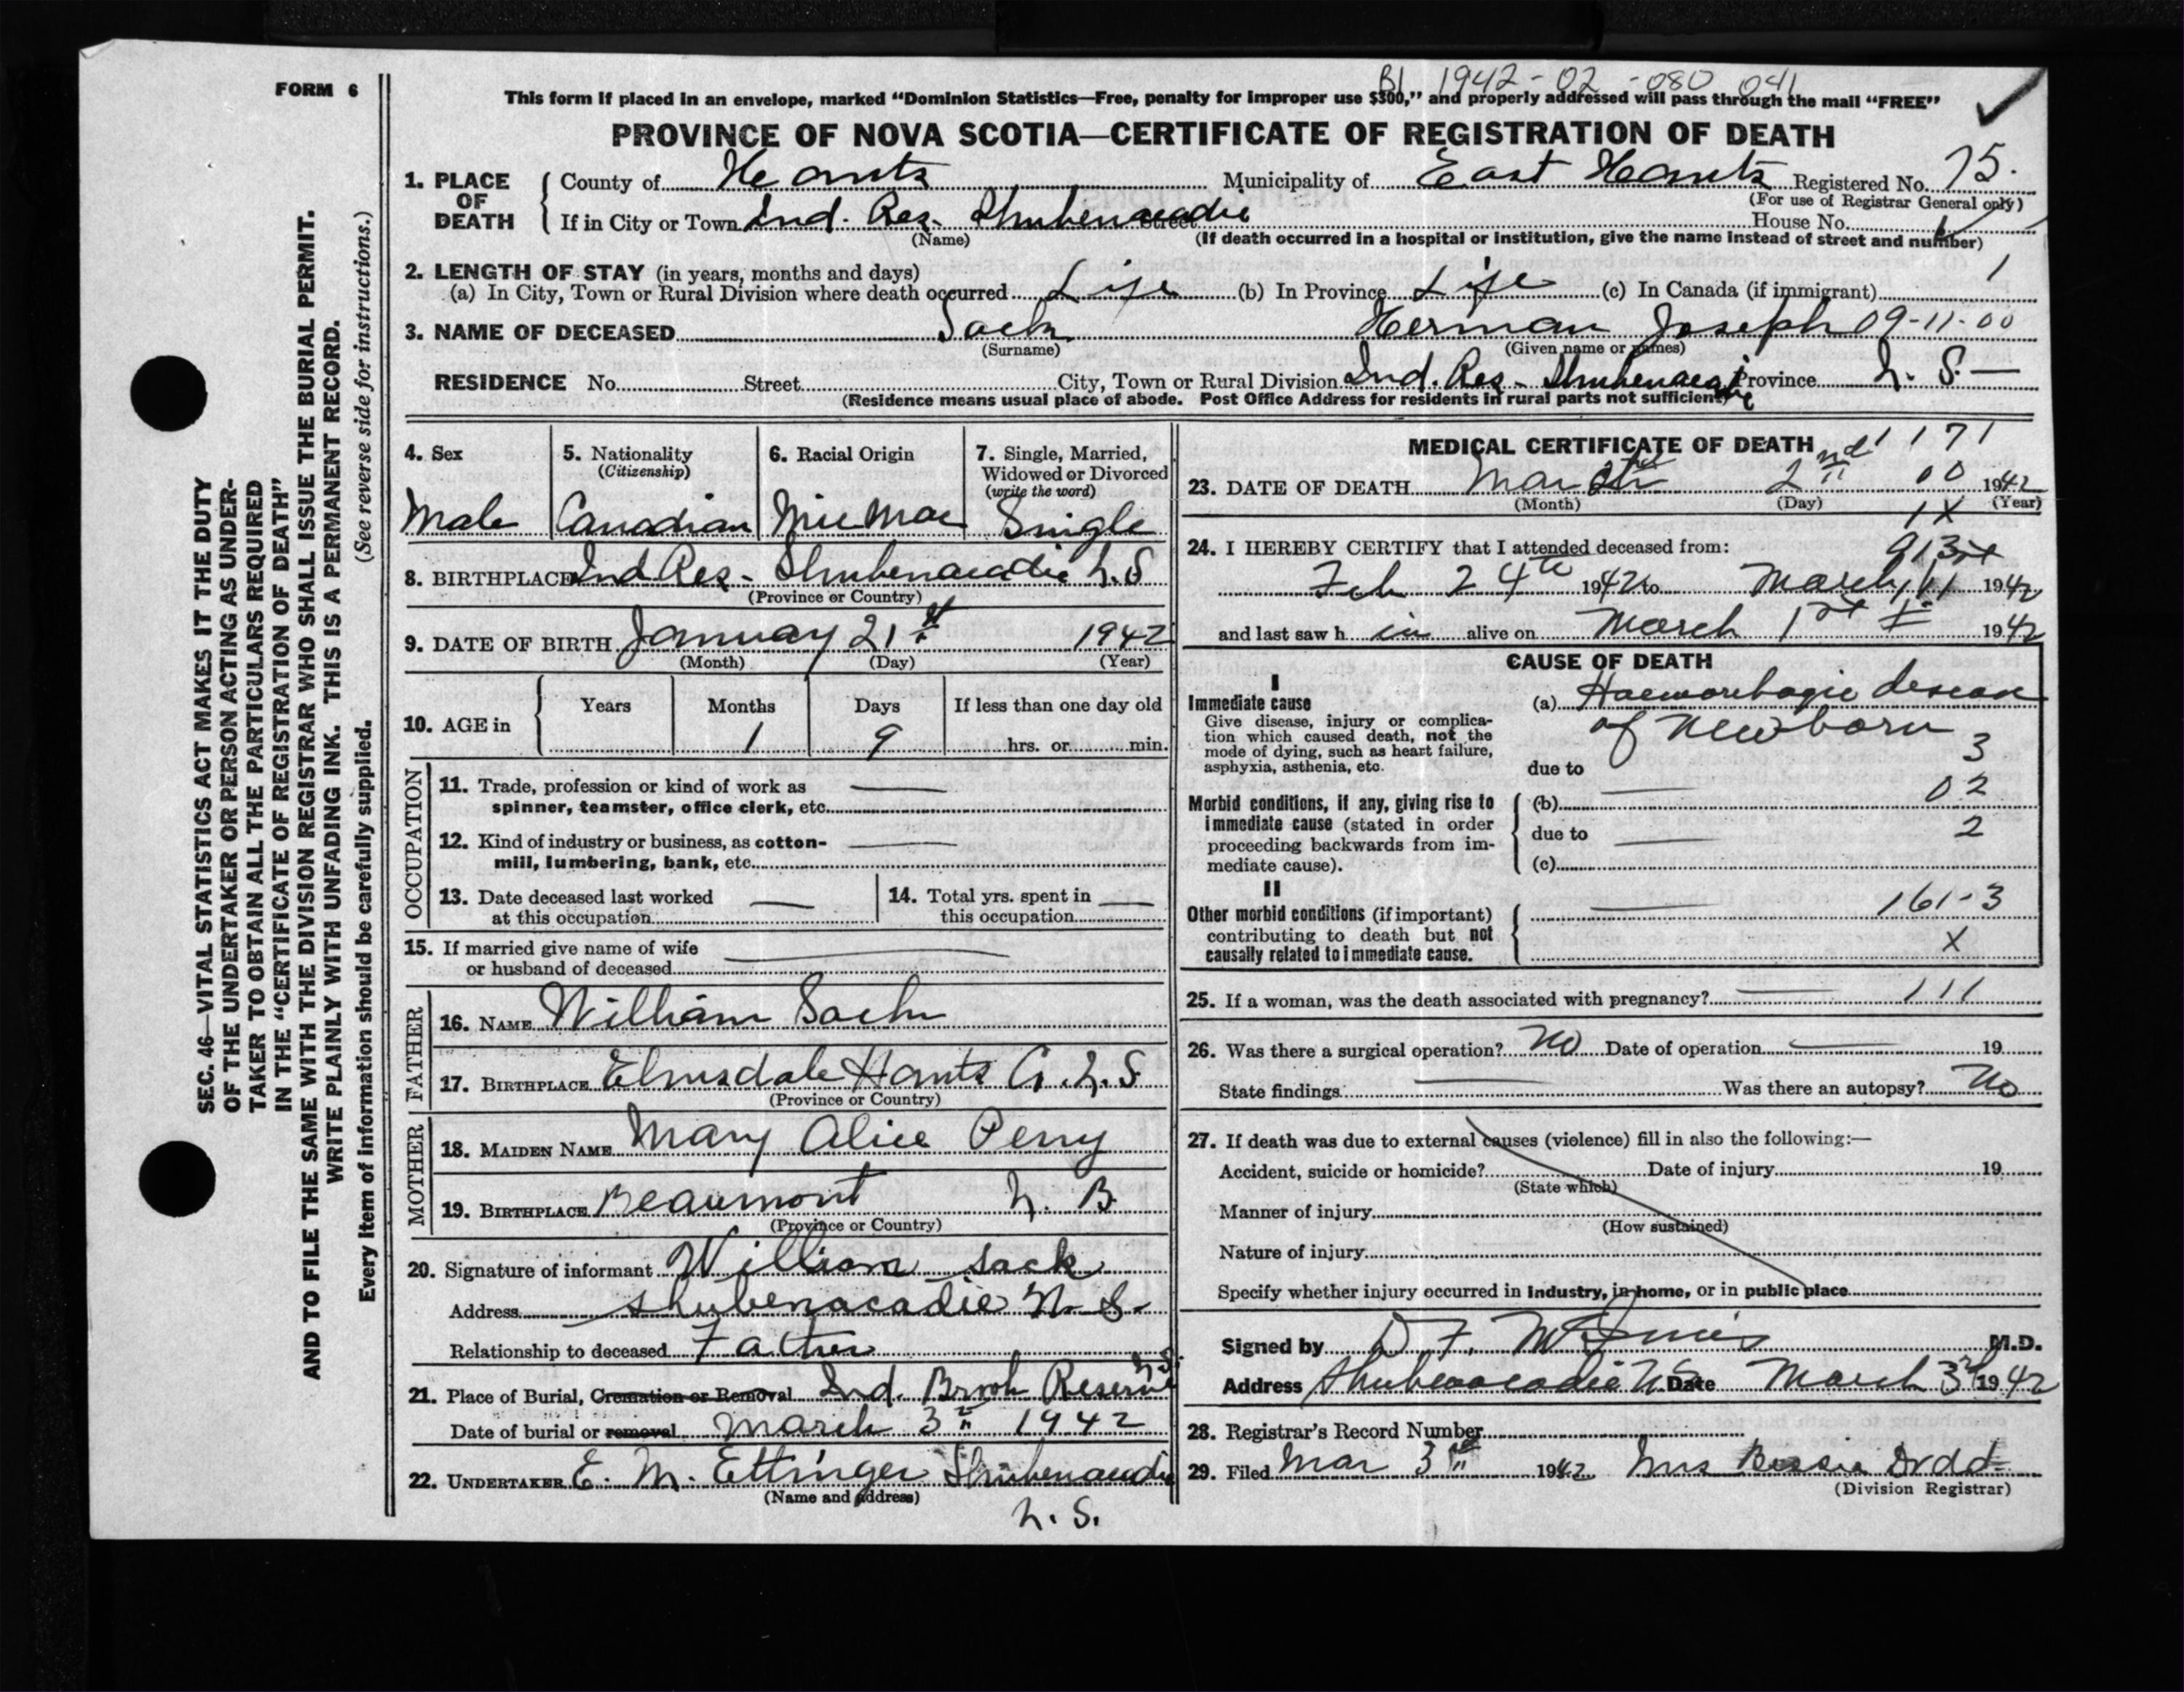 B1 1942-02-080 041
FORM 6
This form if placed in an envelope, marked "Dominion Statistics—Free, penalty for improper use $300," and properly addressed will pass through the mail "FREE"
PROVINCE OF NOVA SCOTIA—CERTIFICATE OF REGISTRATION OF DEATH
SEC. 46—VITAL STATISTICS ACT MAKES IT THE DUTY
OF THE UNDERTAKER OR PERSON ACTING AS UNDER-
TAKER TO OBTAIN ALL THE PARTICULARS REQUIRED
IN THE "CERTIFICATE OF REGISTRATION OF DEATH"
AND TO FILE THE SAME WITH THE DIVISION REGISTRAR WHO SHALL ISSUE THE BURIAL PERMIT.
WRITE PLAINLY WITH UNFADING INK. THIS IS A PERMANENT RECORD.
Every item of information should be carefully supplied. (See reverse side for instructions.)
1. PLACE OF DEATH County of Hants Municipality of East Hants Registered No. 75.
(For use of Registrar General only)
If in City or Town Ind. Res. Shubenacadie Street House No.
(Name) (If death occurred in a hospital or institution, give the name instead of street and number)
2. LENGTH OF STAY (in years, months and days) 1
(a) In City, Town or Rural Division where death occurred Life (b) In Province Life (c) In Canada (if immigrant)
3. NAME OF DECEASED Sack Herman Joseph 09-11-00
(Surname) (Given name or names)
RESIDENCE No. Street City, Town or Rural Division Ind. Res - Shubenacadie Province N. S.—
(Residence means usual place of abode. Post Office Address for residents in rural parts not sufficient)
4. Sex 5. Nationality (Citizenship) 6. Racial Origin 7. Single, Married, Widowed or Divorced (write the word)
Male Canadian MicMac Single
8. BIRTHPLACE Ind Res - Shubenacadie N. S
(Province or Country)
9. DATE OF BIRTH January 21st 1942
(Month) (Day) (Year)
10. AGE in Years Months Days If less than one day old
1 9 hrs. or min.
OCCUPATION
11. Trade, profession or kind of work as —
spinner, teamster, office clerk, etc.
12. Kind of industry or business, as cotton- —
mill, lumbering, bank, etc.
13. Date deceased last worked at this occupation — 14. Total yrs. spent in this occupation —
15. If married give name of wife —
or husband of deceased
FATHER
16. NAME William Sack
17. BIRTHPLACE Elmsdale Hants Co. N. S
(Province or Country)
MOTHER
18. MAIDEN NAME Mary Alice Perry
19. BIRTHPLACE Beaumont N. B.
(Province or Country)
20. Signature of informant William Sack
Address Shubenacadie N. S.
Relationship to deceased Father
21. Place of Burial, Cremation or Removal Ind. Brook Reserve N.S.
Date of burial or removal March 3rd 1942
22. UNDERTAKER E. M. Ettinger Shubenacadie
(Name and address)
N. S.
MEDICAL CERTIFICATE OF DEATH 1171
23. DATE OF DEATH March 2nd 00 1942
(Month) (Day) (Year)
1X
24. I HEREBY CERTIFY that I attended deceased from:
Feb 24th 1942 to March 1942
and last saw h im alive on March 1st 1942
CAUSE OF DEATH
I
Immediate cause (a) Haemorrhagic disease
Give disease, injury or complica- of Newborn
tion which caused death, not the
mode of dying, such as heart failure, 3
asphyxia, asthenia, etc. due to
Morbid conditions, if any, giving rise to (b) — 02
immediate cause (stated in order due to — 2
proceeding backwards from im-
mediate cause). (c)
II
Other morbid conditions (if important) — 161-3
contributing to death but not X
causally related to immediate cause.
25. If a woman, was the death associated with pregnancy? — 111
26. Was there a surgical operation? No Date of operation — 19
State findings — Was there an autopsy? No
27. If death was due to external causes (violence) fill in also the following:—
Accident, suicide or homicide? Date of injury 19
(State which)
Manner of injury
(How sustained)
Nature of injury
Specify whether injury occurred in industry, in home, or in public place
Signed by D. F. McInnis M.D.
Address Shubenacadie N.S Date March 3rd 1942
28. Registrar's Record Number
29. Filed Mar 3rd 1942 Mrs Bessie Dodd
(Division Registrar)